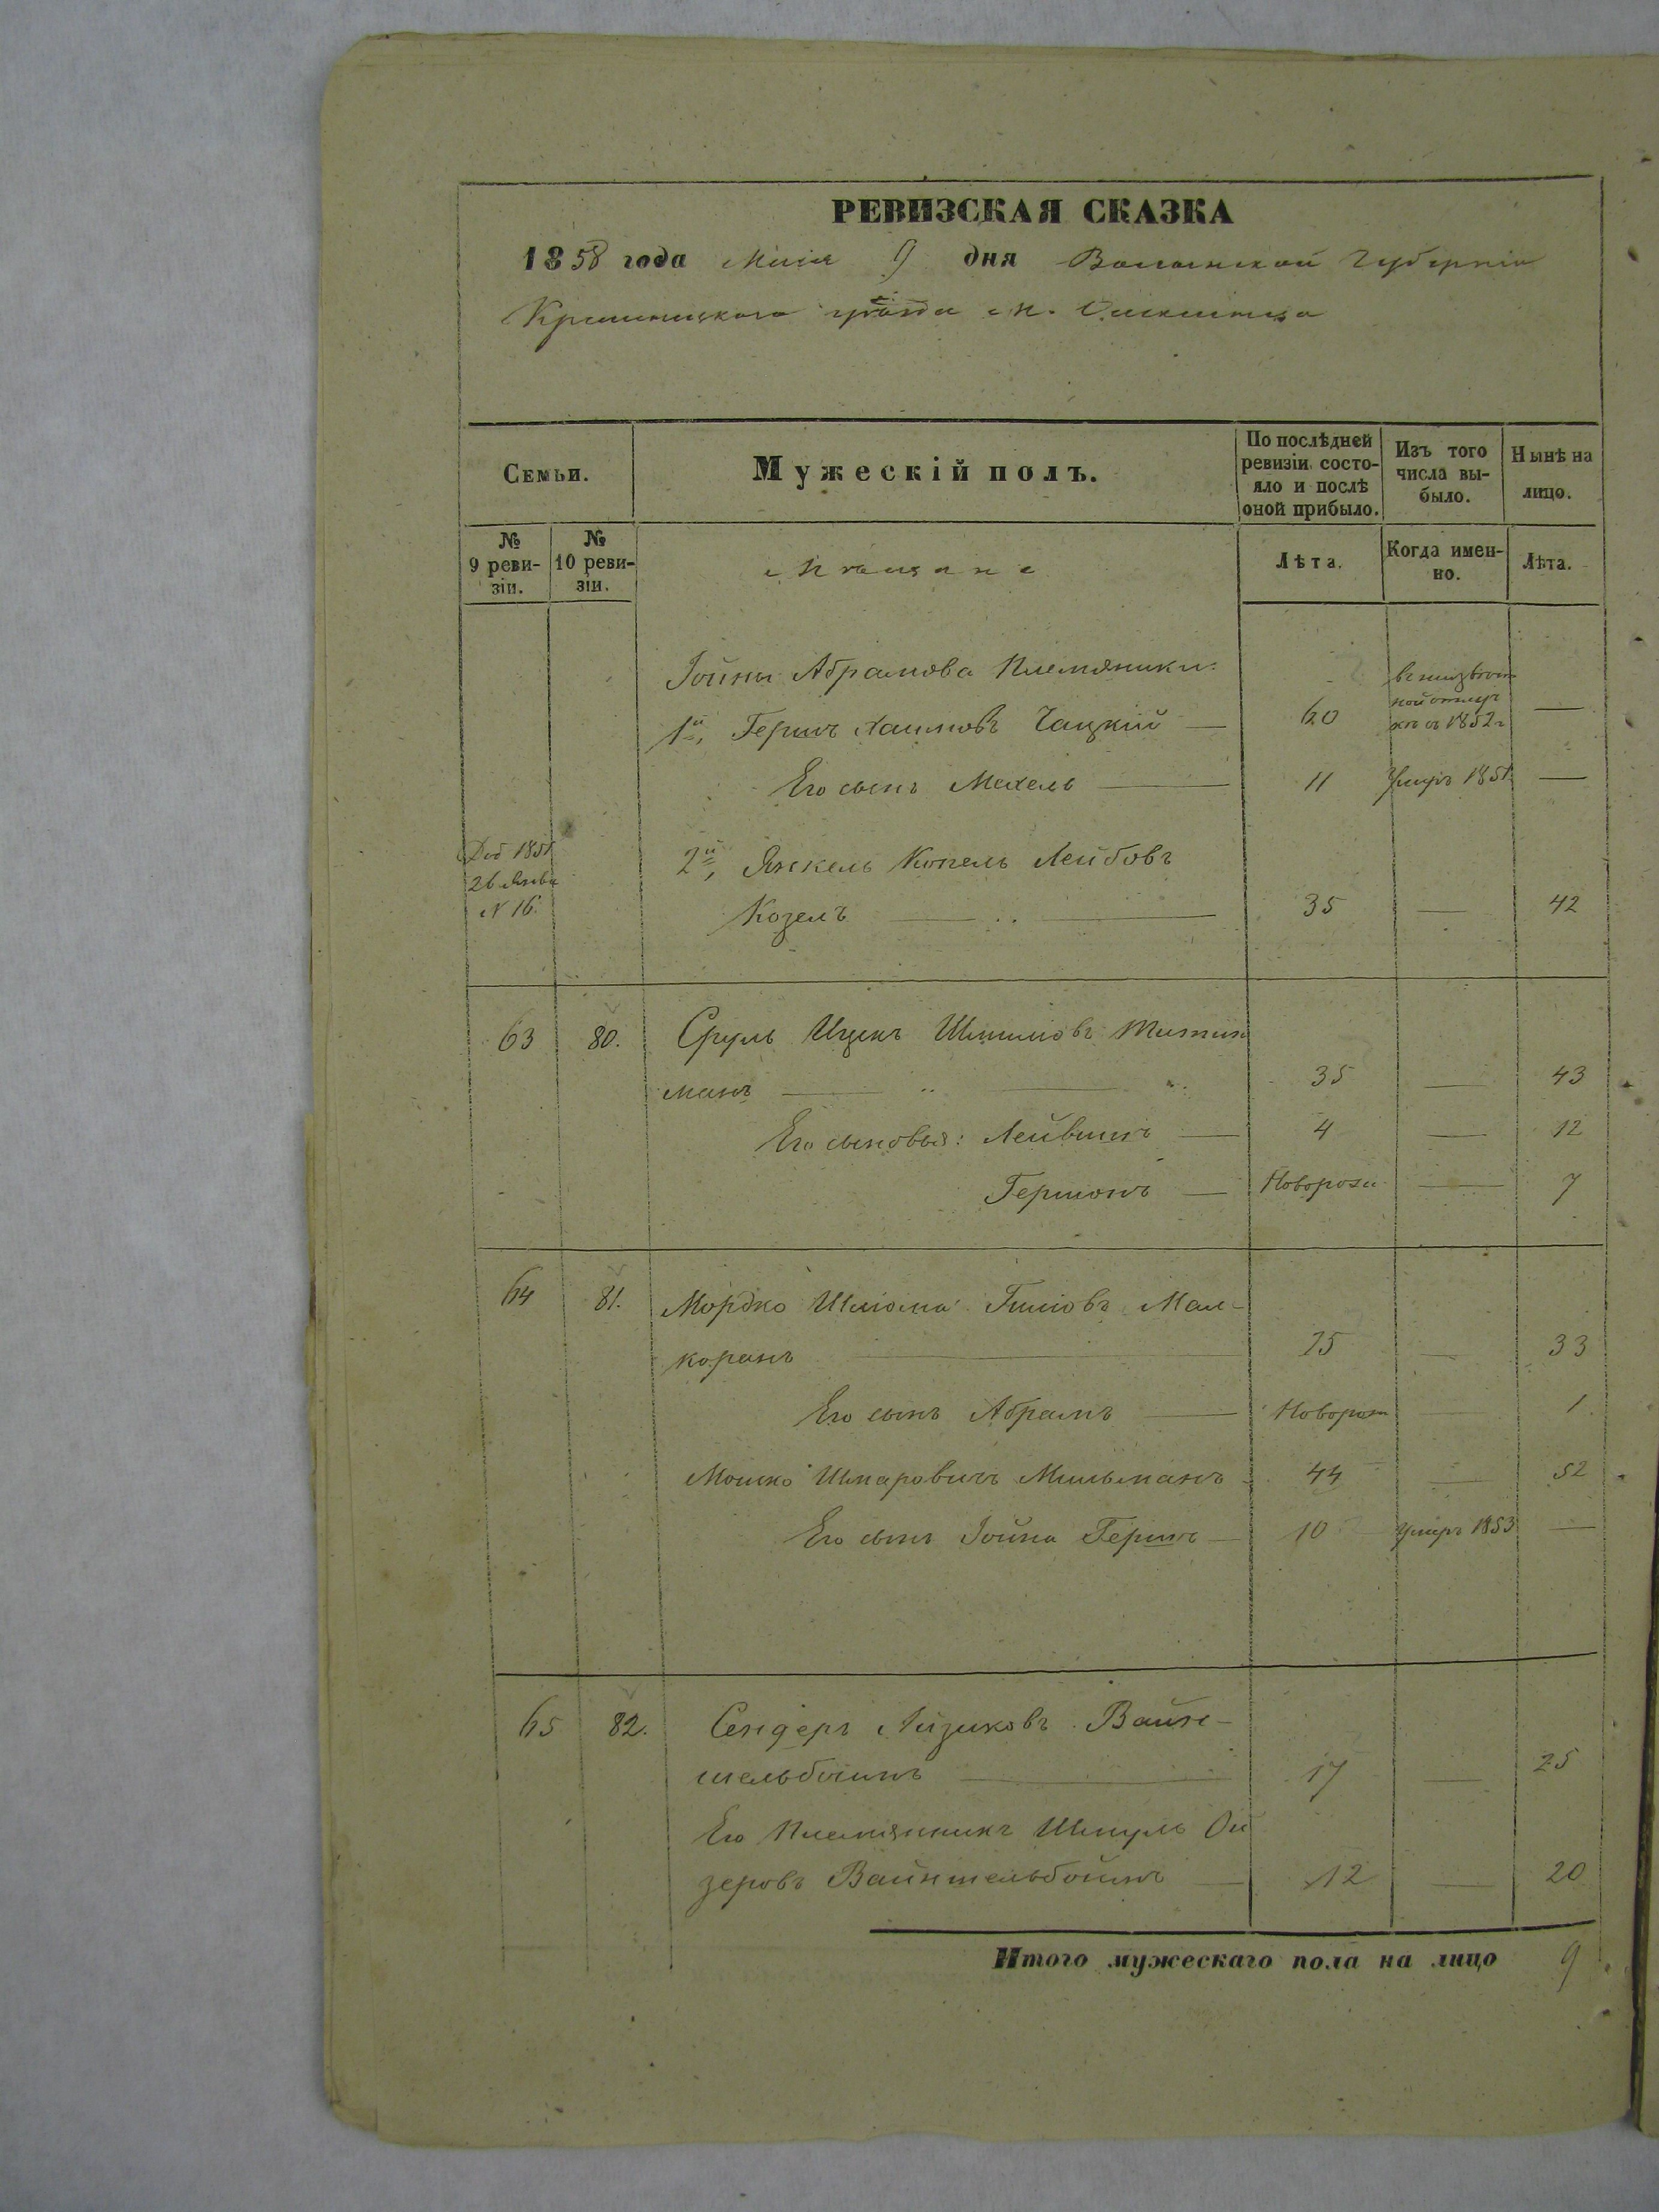 РЕВИЗСКАЯ СКАЗКА
1858 года Маія 9 дня Волынской Губерніи
Кременецкаго уѣзда м.
Семьи.
Мужескій полъ.
По послѣдней ревизіи состо-
яло и послѣ
оной прибыло.
Изъ того
числа вы-
было.
Нынѣ на
лицо.
№
9 реви-
зіи.
№
10 реви-
зіи.
Мѣщане
Лѣта.
Когда имен-
но.
Лѣта.
Іойны Абрамова Племяники:
1й, Гершъ Хаимовъ Чацкій — 60 въ неизвѣст
ной отлуч
кѣ съ 1852 г —
Его сынъ Мехель — 11 Умеръ 1851 —
Доб 1851
26 Янва
N 16.
2й, Янкель Копель Лейбовъ
Козелъ — 35 — 42
63 80. Сруль Ицекъ Шмилiовъ
манъ — 35 — 43
Его сыновья: Лейвикъ — 4 — 12
Гершонъ — Новорож — 7
64 81. Мордко Шліома Мал-
коранъ — 25 — 33
Его сынъ Абрамъ — Новорож — 1
Мошко Шмаровичъ Мильманъ — 44 — 52
Его сынъ Іойна Гершъ — 10 Умеръ 1853 —
65 82. Сендеръ Айзиковъ Вайн-
тельбоимъ — 17 — 25
Его Племянникъ Шмуль Ой
зеровъ Вайнтельбоймъ — 12 — 20
Итого мужескаго пола на лицо 9